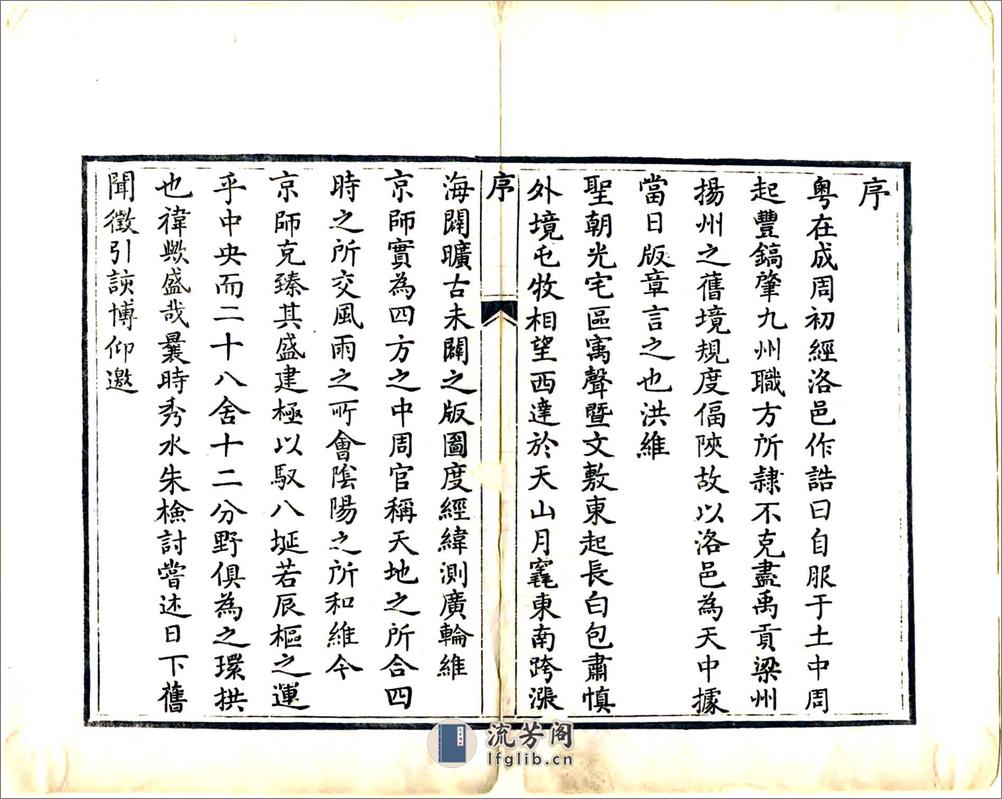 序
粵在成周初經洛邑作誥曰自服于土中周
起豐鎬肇九州職方所隸不克盡禹貢梁州
揚州之舊境規度偪陜故以洛邑為天中據
當日版章言之也洪維
聖朝光宅區寓聲暨文敷東起長白包肅慎
外境屯牧相望西達於天山月竁東南跨漲
序
海闢曠古未闢之版圖度經緯測廣輪維
京師實為四方之中周官稱天地之所合四
時之所交風雨之所會陰陽之所和維今
京師克臻其盛建極以馭八埏若辰樞之運
乎中央而二十八舍十二分野俱為之環拱
也禕歟盛哉曩時秀水朱檢討嘗述日下舊
聞徵引詼博仰邀
流芳阁
lfglib.cn